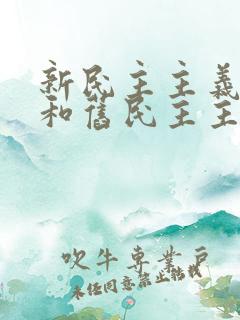 新民主主義
和舊民主主
吹牛專業戶
未任同意禁止轉載